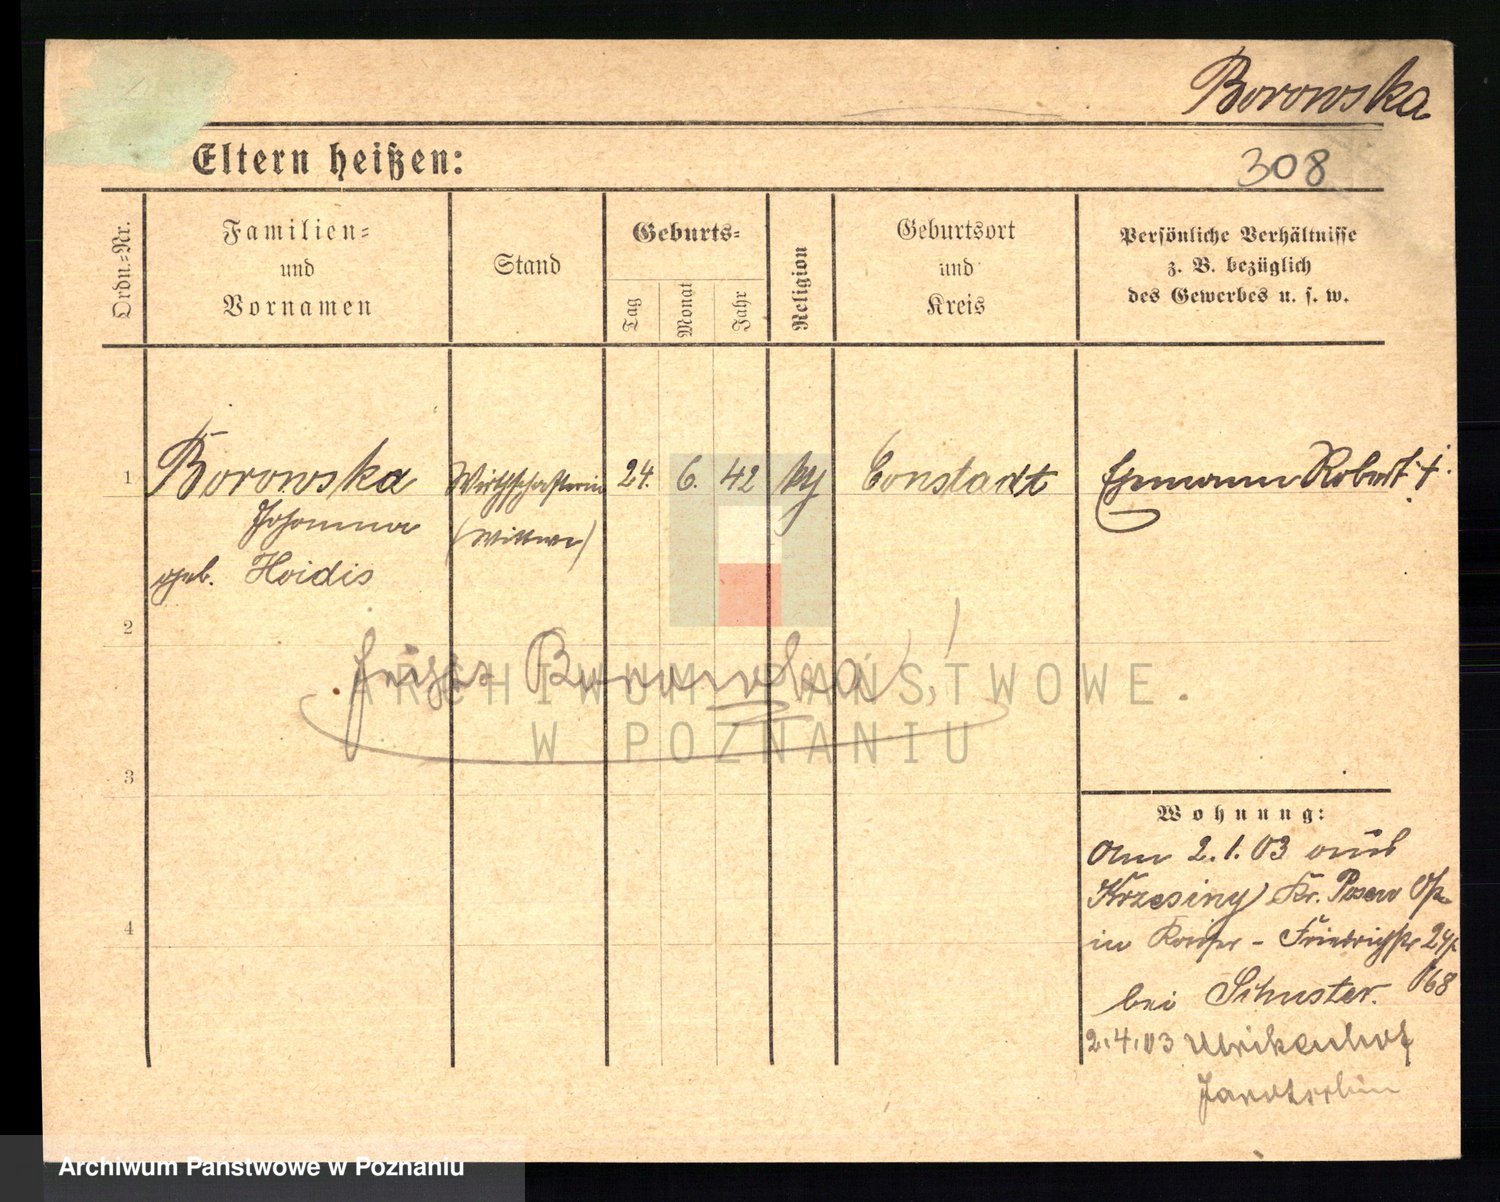 Borowska
Eltern heißen:
308
Ordn.-Nr.
Familien-
und
Vornamen
Stand
Geburts-
Tag
Monat
Jahr
Religion
Geburtsort
und
Kreis
Persönliche Verhältnisse
z. B. bezüglich
des Gewerbes u. s. w.
1
Borowska
Johanna
geb. Hoidis
Wirthschafterin
(Wittwe)
24. 6. 42
Constadt
Ehemann Robert †.
2
Borowska
ARCHIWUM PAŃSTWOWE
W POZNANIU
3
4
Wohnung:
Am 2.1.03 aus
Krzesiny Kr. Posen
in Kaiser-Friedrichstr
bei Schuster.
2.4.03 Ulrikenhof
Archiwum Państwowe w Poznaniu